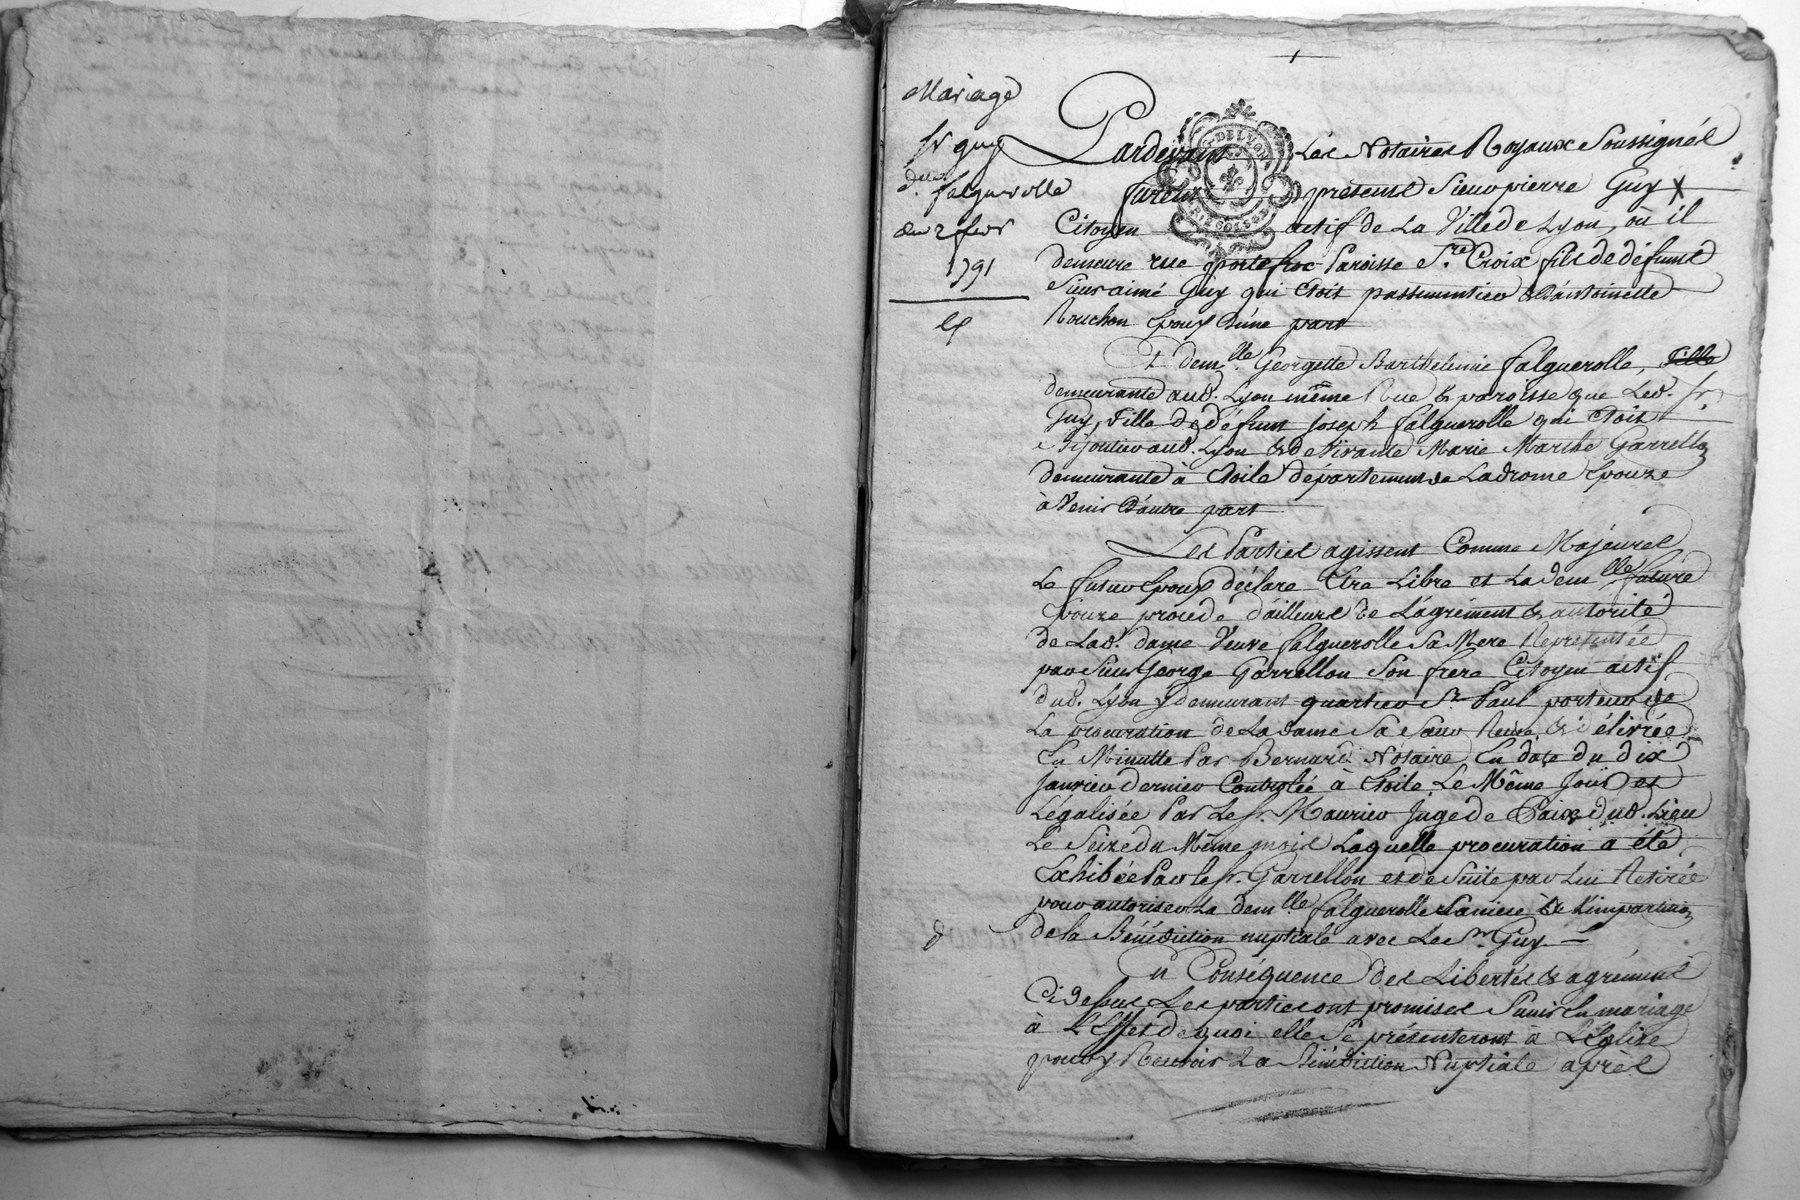 Mariage
Sr guy
dlle falguerolle
du 2 fevr
1791
Pardevant Les Notaires Royaux Soussignés
furent présents Sieur pierre Guy
Citoyen actif de La Ville de Lyon, où il
demeure rue portefroc Paroisse Ste Croix fils de défunt
Sieur aimé Guy qui étoit passementier & d'antoinette
Rouchon époux d'une part
Et demlle Georgette Barthelemie falguerolle, fille
demeurante aud. Lyon même Rue & paroisse que Led. Sr.
Guy, fille de défunt joseph falguerolle qui étoit
Bijoutier aud. Lyon & de vivante Marie Marthe Garrellon
demeurante à Etoile département de Ladrome Epouze
à venir d'autre part
Les Parties agissent Comme Majeures
Le futur Epoux déclare Etre Libre et La demlle future
Epouze procéde d'ailleurs de L'agrément & autorité
de Lad. dame Veuve falguerolle Sa Mere Représentée
par Sieur George Garrellon Son frere Citoyen actif
dud. Lyon y demeurant quartier St Paul porteur de
La procuration de La dame Sa Sœur Reçue & délivrée
En Minutte Par Bernard Notaire En date du dix
Janvier dernier Controlée à Etoile Le Même Jour et
Légalisée Par Le Sr. Maurier Juge de Paix dud. Lieu
Le Seize du Même mois Laquelle procuration a été
Exhibée Par le Sr. Garrellon et de Suite par Lui Retirée
pour autoriser La demlle falguerolle Sa niece & L'impartition
de la Bénédiction nuptiale avec Le Sr Guy
En Conséquence des Libertés & agrément
Cidessus Les parties ont promises S'unir En mariage
à L'Effet de quoi elle Se présenteront à L'Eglise
pour y Recevoir La Bénédiction Nuptiale après